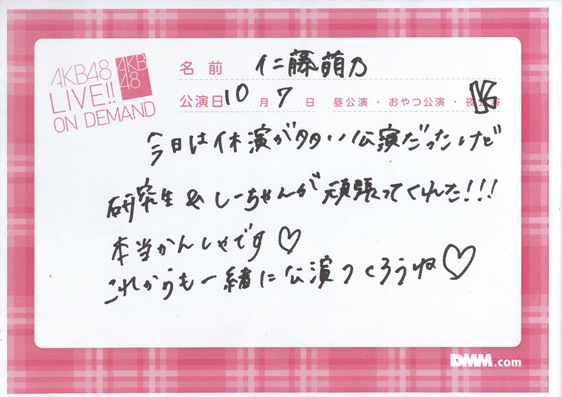 AKB48
LIVE!!
ON DEMAND
AKB
48
名前 仁藤萌乃
公演日 10月7日 昼公演・おやつ公演・夜公演
今日は休演が多い公演だったけど
研究生&しーちゃんが頑張ってくれた!!!
本当かんしゃです♡
これからも一緒に公演つくろうね♡
DMM.com